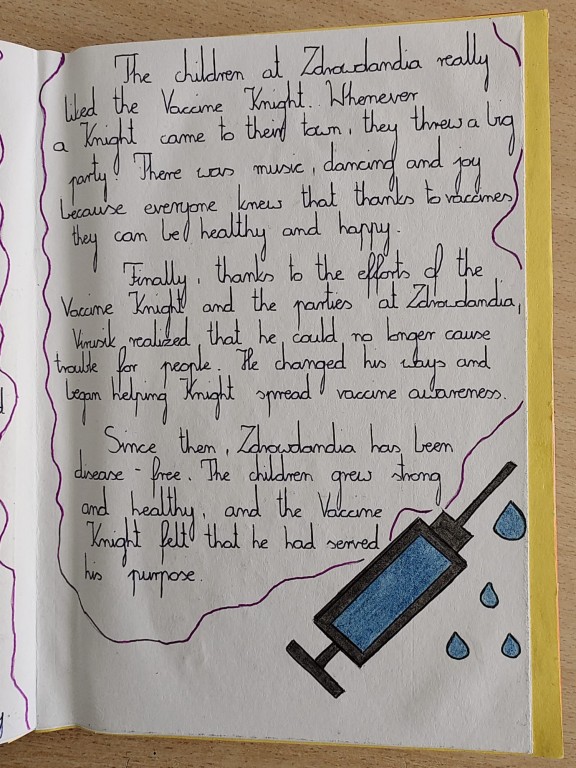 The children at Zdrowlandia really
liked the Vaccine Knight. Whenever
a Knight came to their town, they threw a big
party! There was music, dancing and joy
because everyone knew that thanks to vaccines
they can be healthy and happy.
Finally, thanks to the efforts of the
Vaccine Knight and the parties at Zdrowlandia,
Virusik realized that he could no longer cause
trouble for people. He changed his ways and
began helping Knight spread vaccine awareness.
Since then, Zdrowlandia has been
disease-free. The children grew strong
and healthy, and the Vaccine
Knight felt that he had served
his purpose.